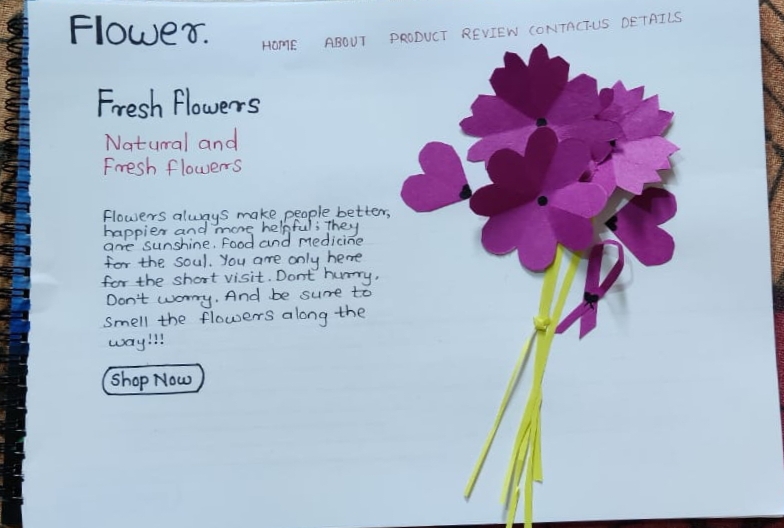 Flower.
HOME ABOUT PRODUCT REVIEW CONTACT-US DETAILS
Fresh flowers
Natural and
Fresh flowers
Flowers always make people better,
happier and more helpful; They
are sunshine. Food and Medicine
for the soul. You are only here
for the short visit. Dont hurry.
Don't worry. And be sure to
smell the flowers along the
way!!!
Shop Now